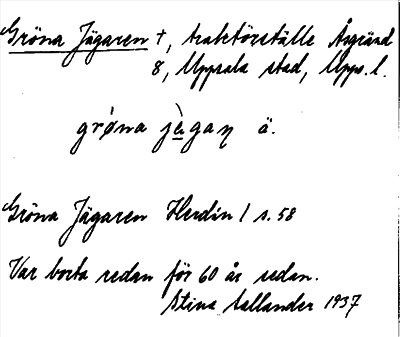 Gröna Jägaren †, traktörställe Åsgränd
8, Uppsala stad, Upps. l.
grǿna jàgaɳ ä.
Gröna Jägaren Herdin 1 s. 58
Var borta redan för 60 år sedan.
Stina Sallander 1937